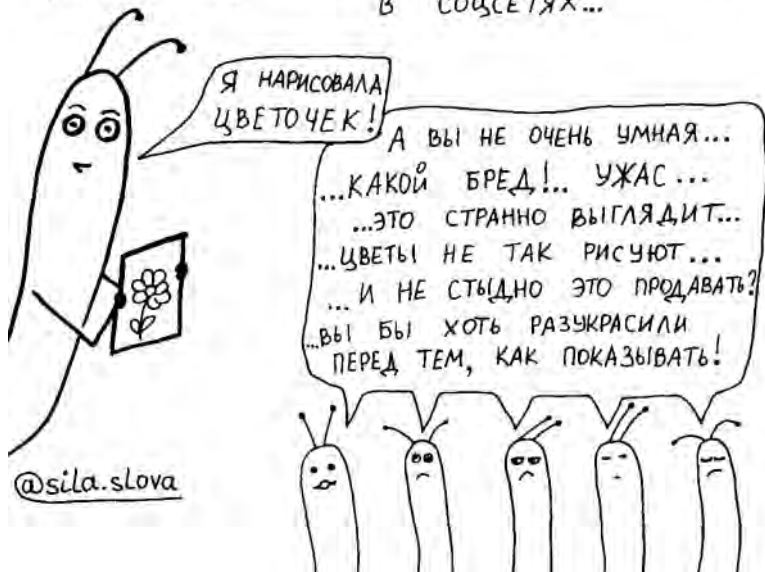 В СОЦСЕТЯХ...
Я НАРИСОВАЛА
ЦВЕТОЧЕК!
А ВЫ НЕ ОЧЕНЬ УМНАЯ...
...КАКОЙ БРЕД!.. УЖАС...
...ЭТО СТРАННО ВЫГЛЯДИТ...
...ЦВЕТЫ НЕ ТАК РИСУЮТ...
... И НЕ СТЫДНО ЭТО ПРОДАВАТЬ?
...ВЫ БЫ ХОТЬ РАЗУКРАСИЛИ
ПЕРЕД ТЕМ, КАК ПОКАЗЫВАТЬ!
@sila.slova